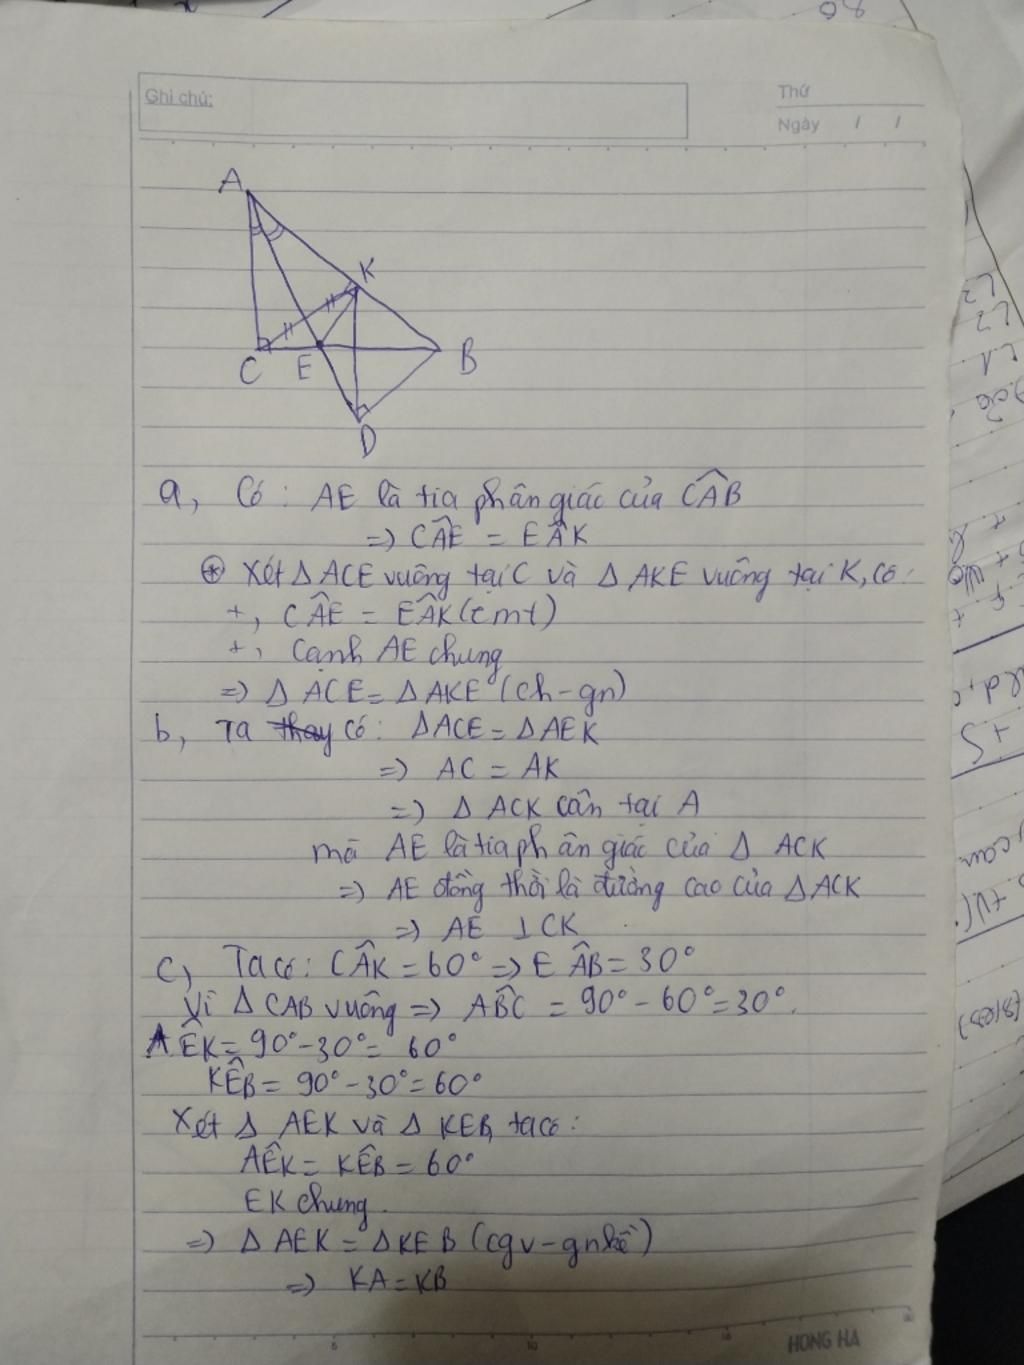 Ghi chú:
Thứ
Ngày / /
A
K
C E B
D
a, Có : AE là tia phân giác của CÂB
=> CÂE = EÂK
⊛ Xét Δ ACE vuông tại C và Δ AKE vuông tại K, có :
+, CÂE = EÂK (cmt)
+, Cạnh AE chung
=> Δ ACE = Δ AKE (ch-gn)
b, Ta thay có : ΔACE = ΔAEK
=> AC = AK
=> Δ ACK cân tại A
mà AE là tia phân giác của Δ ACK
=> AE đồng thời là đường cao của ΔACK
=> AE ⊥ CK
c, Ta có : CÂK = 60° => EÂB = 30°
Vì Δ CAB vuông => AB̂C = 90° - 60° = 30°.
AÊK = 90° - 30° = 60°
KÊB = 90° - 30° = 60°
Xét Δ AEK và Δ KEB, ta có :
AÊK = KÊB = 60°
EK chung
=> Δ AEK = ΔKEB (cgv-gnkề)
=> KA = KB
5 10 15
HONG HA